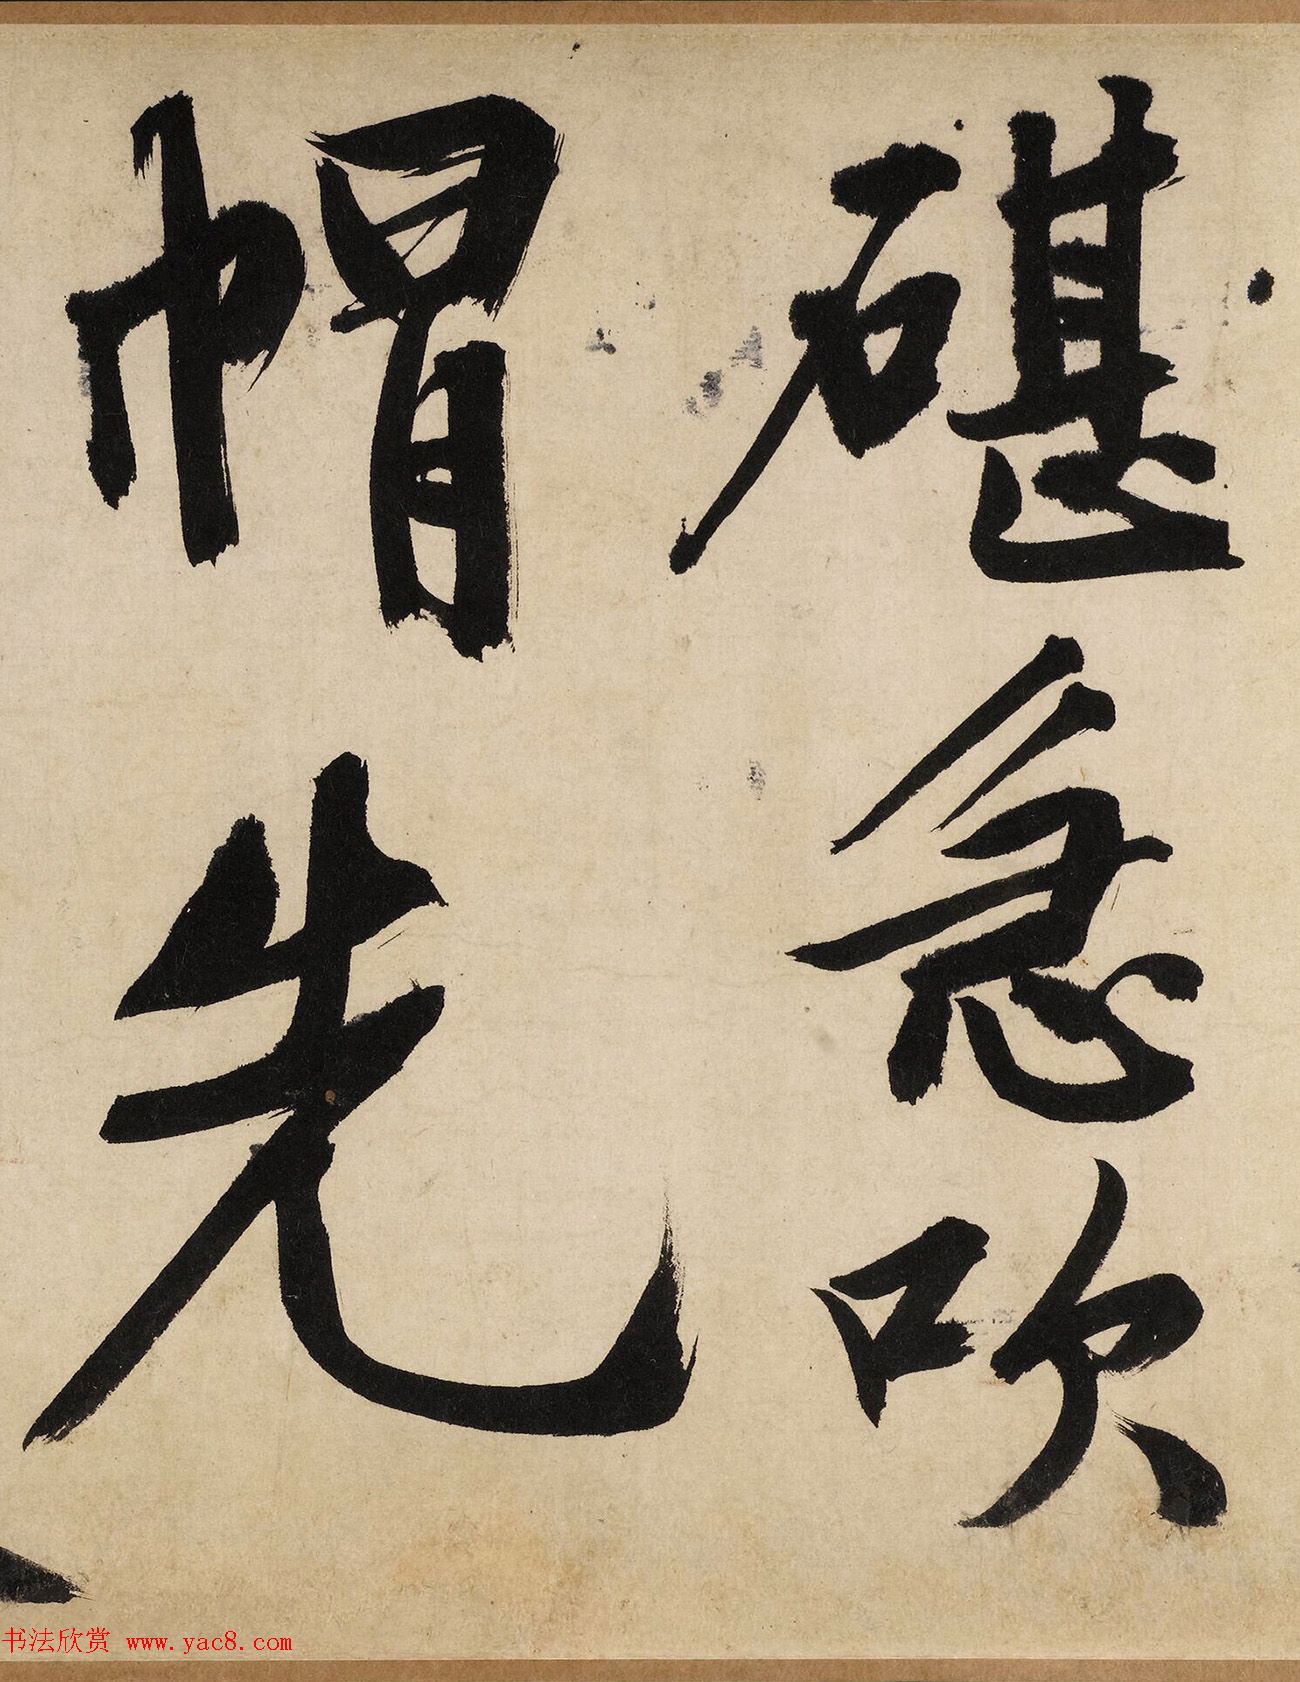 碪急吹
帽先
书法欣赏 www.yac8.com